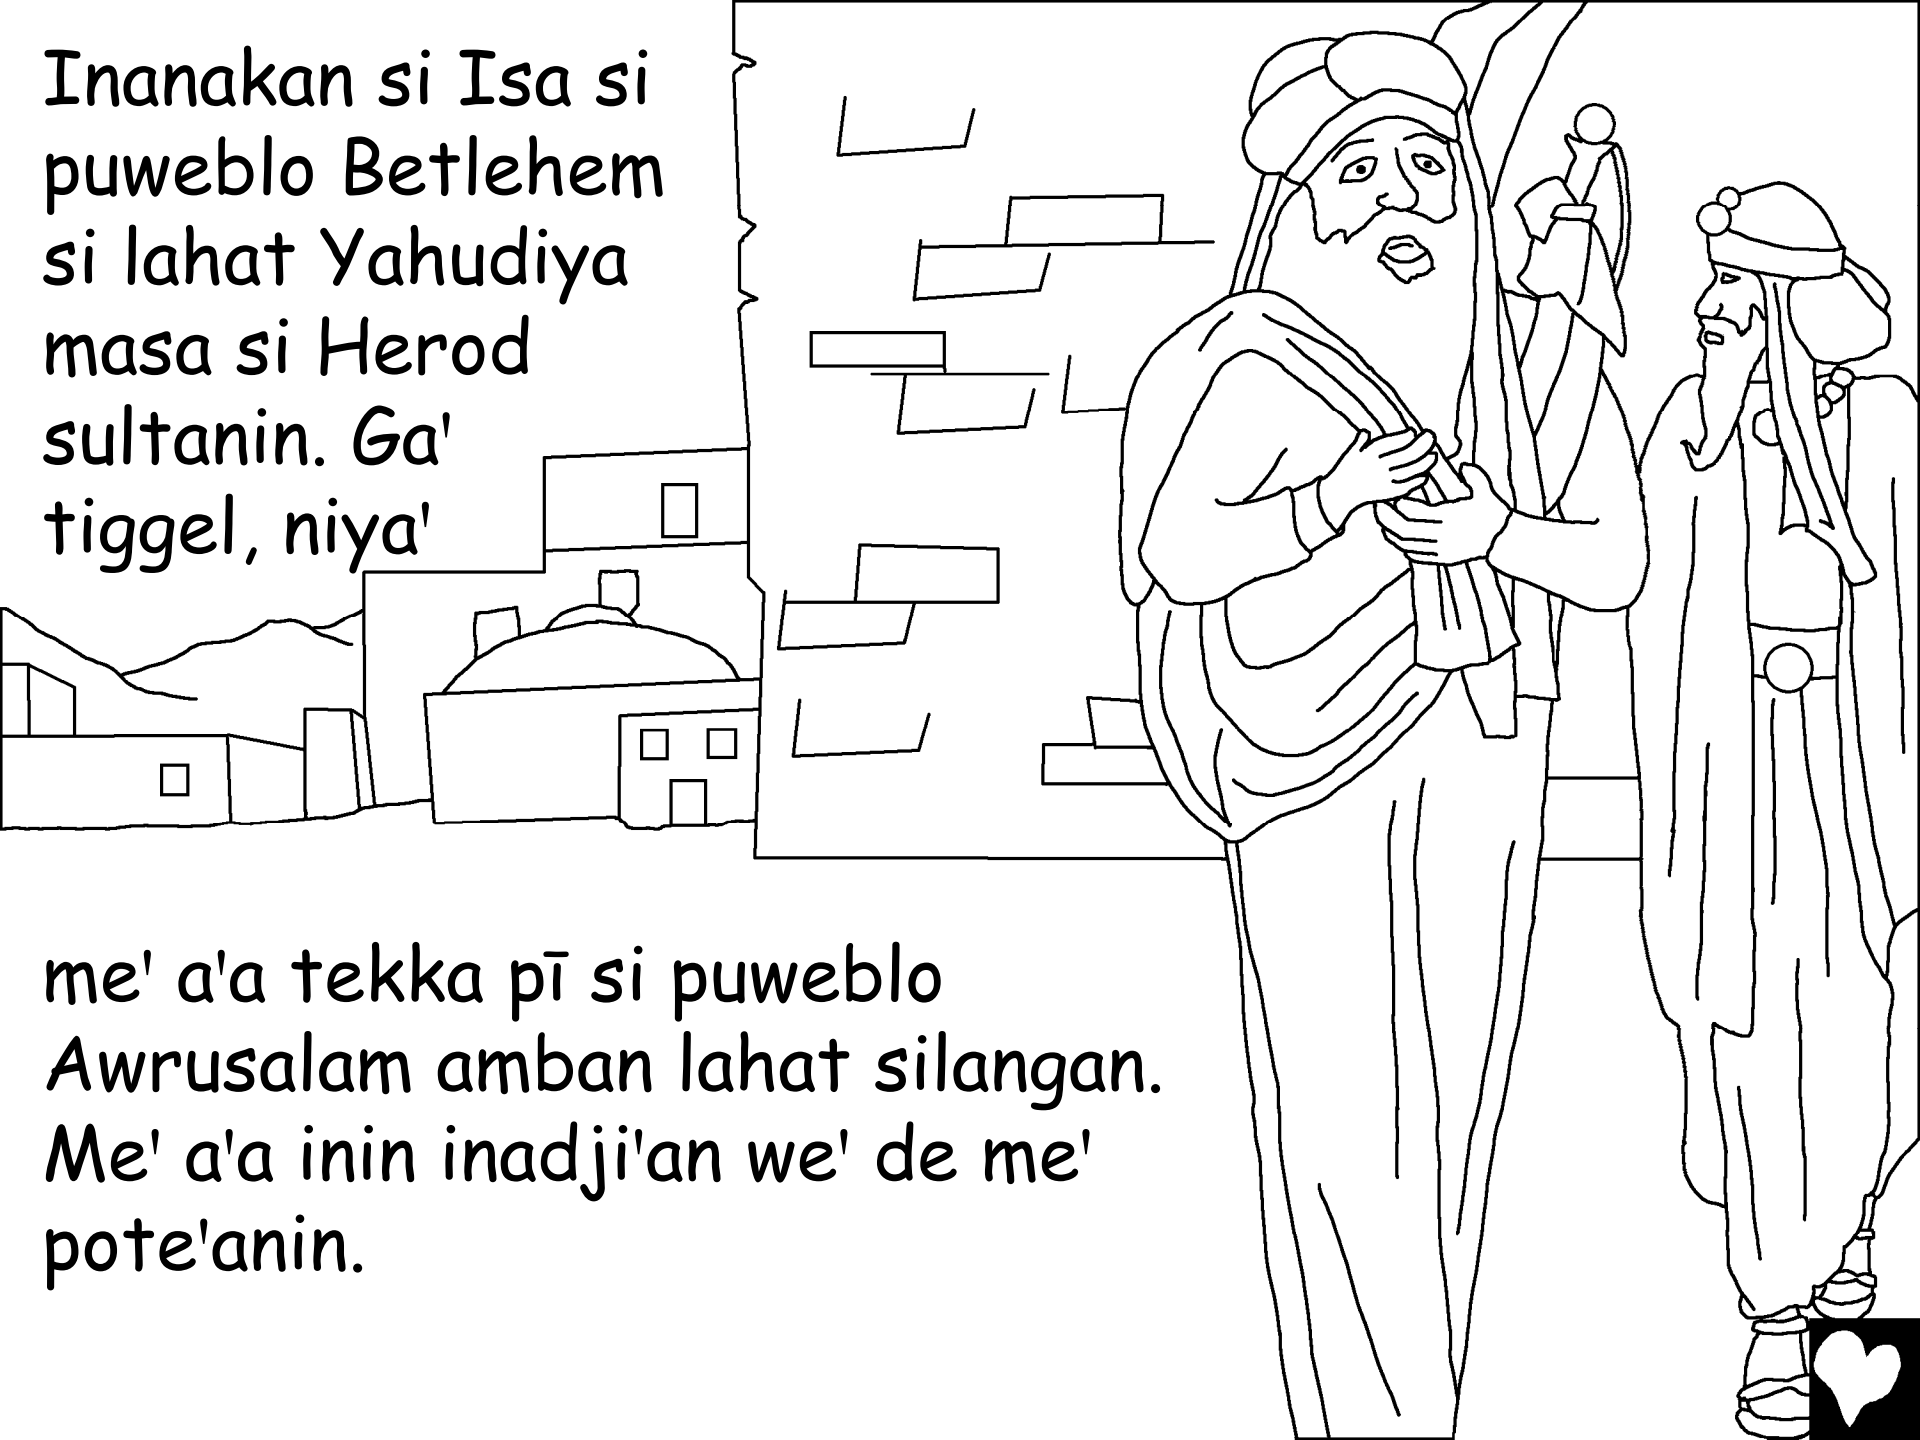 Inanakan si Isa si
puweblo Betlehem
si lahat Yahudiya
masa si Herod
sultanin. Ga'
tiggel, niya'
me' a'a tekka pī si puweblo
Awrusalam amban lahat silangan.
Me' a'a inin inadji'an we' de me'
pote'anin.